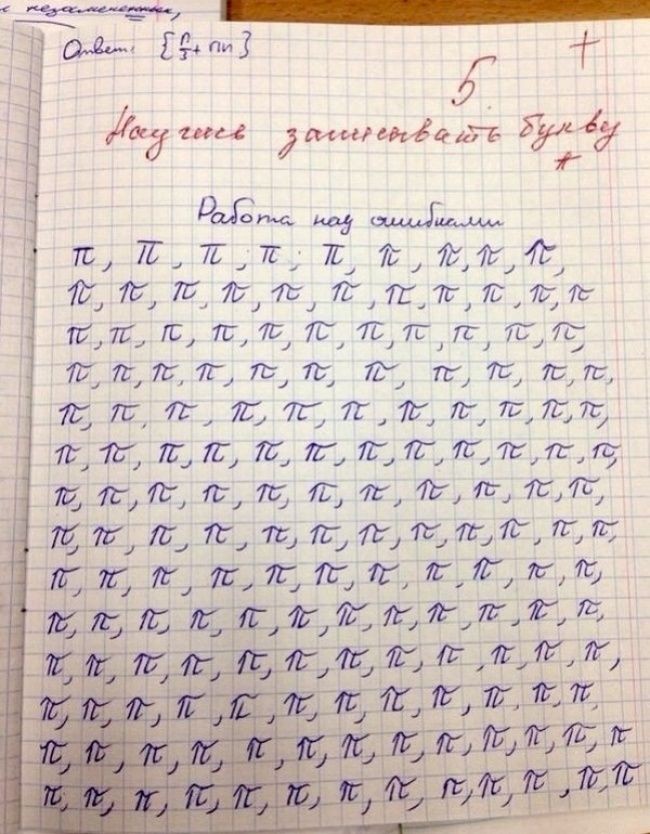 незамененных,
Ответ: {п/3 + пn}
5. +
Научись записывать букву
π
Работа над ошибками
π, π, π, π, π, π, π, π, π,
π, π, π, π, π, π, π, π, π, π, π
π, π, π, π, π, π, π, π, π, π, π,
π, π, π, π, π, π, π, π, π, π, π,
π, π, π, π, π, π, π, π, π, π, π,
π, π, π, π, π, π, π, π, π, π, π, π,
π, π, π, π, π, π, π, π, π, π, π,
π, π, π, π, π, π, π, π, π, π, π, π,
π, π, π, π, π, π, π, π, π, π, π,
π, π, π, π, π, π, π, π, π, π, π, π,
π, π, π, π, π, π, π, π, π, π, π, π,
π, π, π, π, π, π, π, π, π, π, π, π,
π, π, π, π, π, π, π, π, π, π, π, π, π
π, π, π, π, π, π, π, π, π, π, π, π, π